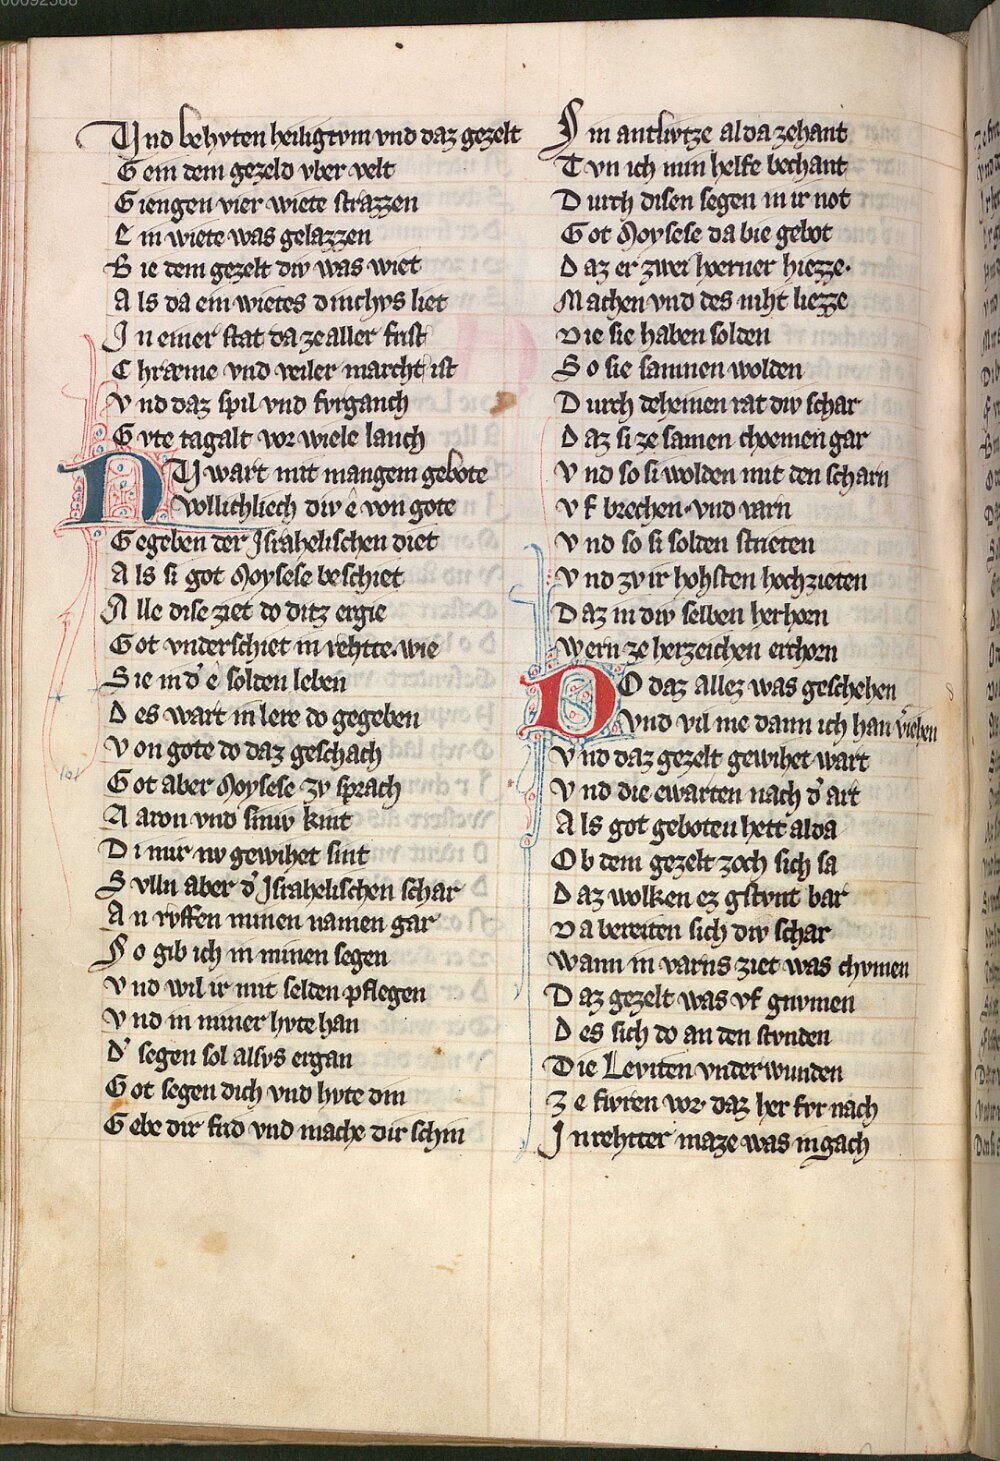 00092588
Vnd behvten heiligtvm vnd daz gezelt
Gein dem gezeld vber velt
Giengen vier wiete strazzen
Ein wiete was gelazzen
Bie dem gezelt div was wiet
Als da ein wietes dinchvs liet
In einer stat da ze aller frist
Chræme vnd veiler marcht ist
Vnd daz spil vnd fvrganch
Gvte tagalt vor wiele lanch
NV wart mit mangem gebote
Vollichliech div e von gote
Gegeben der Israhelischen diet
Als si got Moysese beschiet
Alle dise ziet do ditz ergie
Got vnderschiet in rehtte wie
Sie in d' e solden leben
Des wart in lere do gegeben
Von gote do daz geschach
Got aber Moysese zv sprach
Aaron vnd siniv kint
Di nur nv gewihet sint
Svlln aber d' Israhelischen schar
An rvffen minen namen gar
So gib ich in minen segen
Vnd wil ir mit selden pflegen
Vnd in miner hvte han
D' segen sol alsvs ergan
Got segen dich vnd hvte din
Gebe dir frid vnd mache dir schin
Sin antlvtze alda zehant
Tvn ich min helfe bechant
Dvrch disen segen in ir not
Got Moysese da bie gebot
Daz er zwei hoerner hiezze·
Machen vnd des niht liezze
Die sie haben solden
So sie samnen wolden
Durch deheinen rat div schar
Daz si ze samen choemen gar
Vnd so si wolden mit den scharn
Vf brechen· vnd varn
Vnd so si solden strieten
Vnd zv ir hohsten hochzieten
Daz in div selben herhorn
Wern ze herzeichen erchorn
DO daz allez was geschehen
Vnd vil me dann ich han v'iehen
Vnd daz gezelt gewihet wart
Vnd die ewarten nach d' art
Als got geboten hett alda
Ob dem gezelt zoch sich sa
Daz wolken ez gstvnt bar
Da bereiten sich div schar
Wann in varns ziet was chvmen
Daz gezelt was vf gnvmen
Des sich do an den stvnden
Die Leviten vnderwunden
Ze fvren vor daz her fvr nach
In rehtter maze was in gach